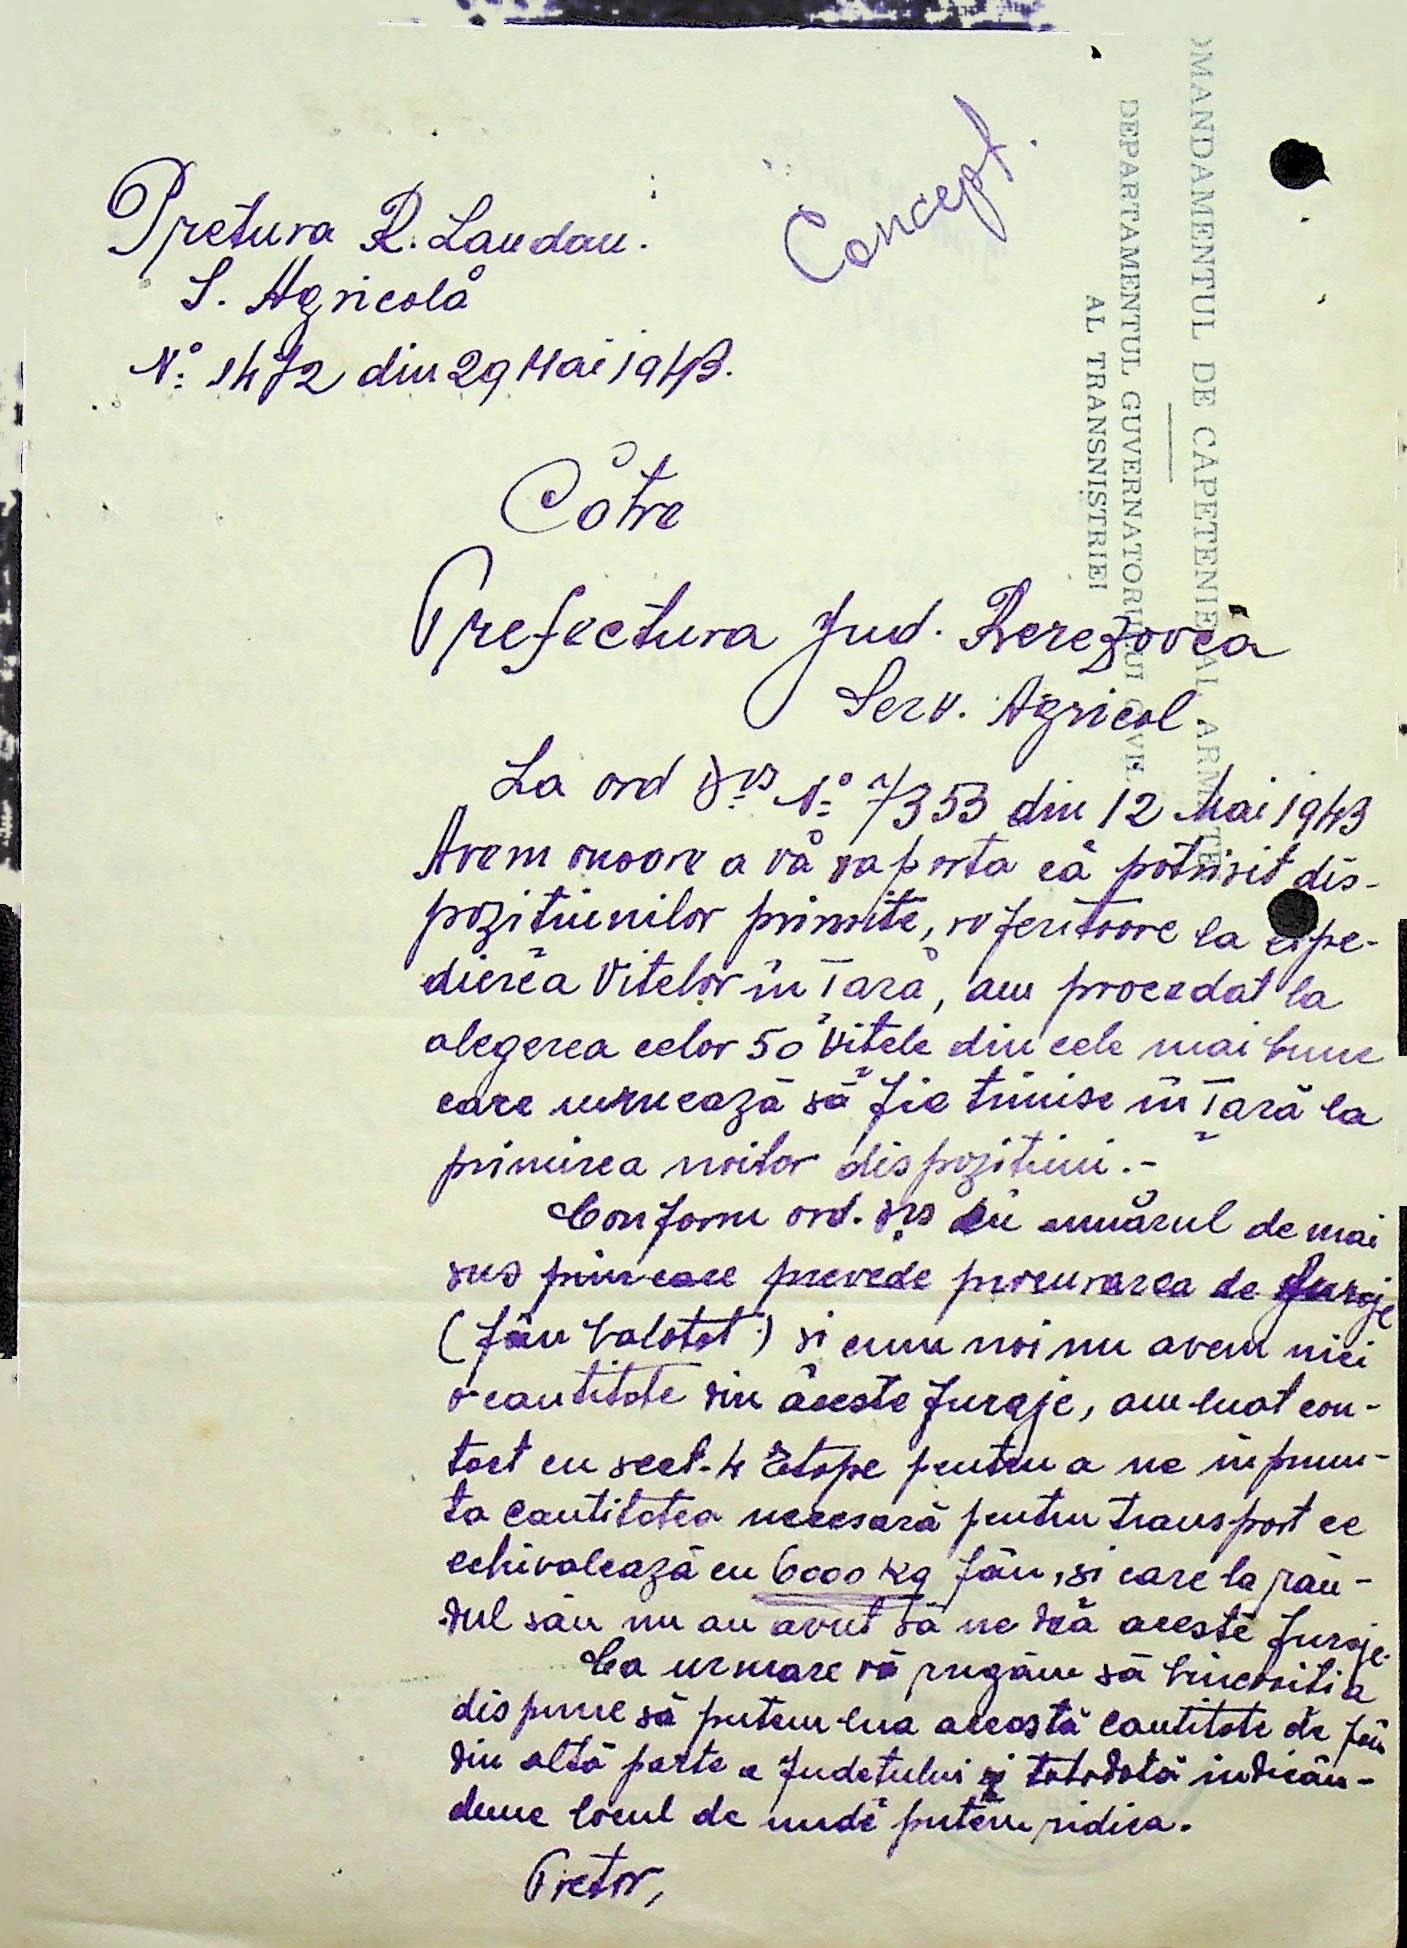 Concept.
Pretura R. Landau.
S. Agricolă
No: 1472 din 29 Mai 1943.
Către
Prefectura Jud. Berezovca
Serv. Agricol.
La ord Dvs No 7353 din 12 Mai 1943
Avem onoare a vă raporta că potrivit dis-
pozițiunilor primite, referitoare la expe-
dierea Vitelor în Țară, am procedat la
alegerea celor 50 Vitele din cele mai bune
care urmează să fie trimise în Țară la
primirea noilor dispozițiuni.-
Conform ord. dvs cu numărul de mai
sus prin care prevede procurarea de furaje
(fân balotat) si cum noi nu avem nici
o cantitate din aceste furaje, am luat con-
tact cu sect. 4 Etape pentru a ne împrumu-
ta cantitatea necesară pentru transport ce
echivalează cu 6000 kg fân, si care la rân-
dul său nu au avut să ne dea aceste furaje.
Ca urmare vă rugăm să binevoiti a
dispune să putem lua această cantitate de fân
din altă parte a Judetului si totodată indicân-
dune locul de unde putem ridica.
Pretor,
OMANDAMENTUL DE CAPETENIE AL ARMATEI
DEPARTAMENTUL GUVERNATORULUI CIVIL
AL TRANSNISTRIEI